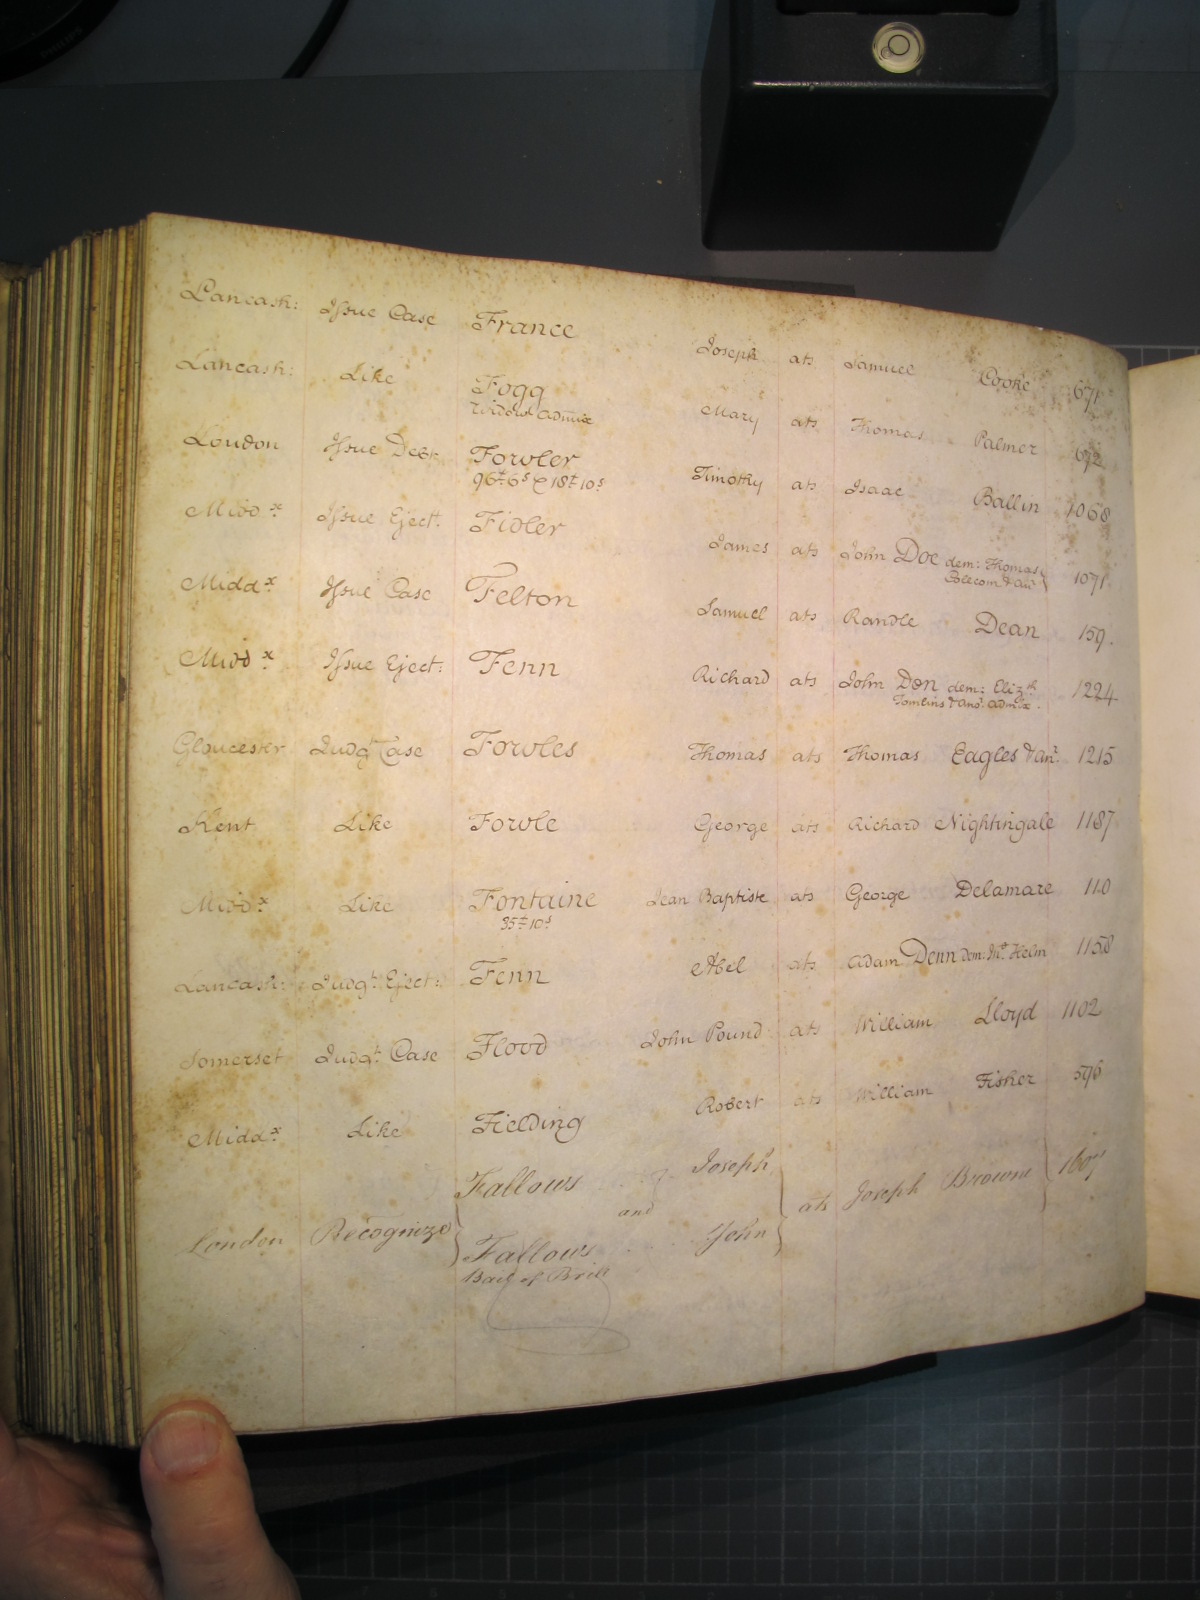 Lancash: Issue Case France Joseph ats Samuel Cooke 671
Lancash: Like Fogg Mary ats Thomas Palmer 672
Widow Admix
London Issue Debt Fowler Timothy ats Isaac Ballin 1068
96£ 6s & 18£ 10s
Middx Issue Eject: Fidler James ats John Doe dem: Thomas 1071
Colecom & anr
Middx Issue Case Felton Samuel ats Randle Dean 159.
Middx Issue Eject: Fenn Richard ats John Den dem: Elizth 1224
Tomlins & anor. admx.
Gloucester Judgt Case Fowles Thomas ats Thomas Eagles & anr. 1215
Kent Like Fowle George ats Richard Nightingale 1187
Middx Like Fontaine Jean Baptiste ats George Delamare 110
35£ 10s
Lancash: Judgt. Eject: Fenn Abel ats Adam Denn dem: Helm 1158
Somerset Judgt. Case Flood John Pound ats William Lloyd 1102
Middx Like Fielding Robert ats William Fisher 596
London Recognize Fallows Joseph ats Joseph Browne 1607
and
Fallows John
Bail of Brill